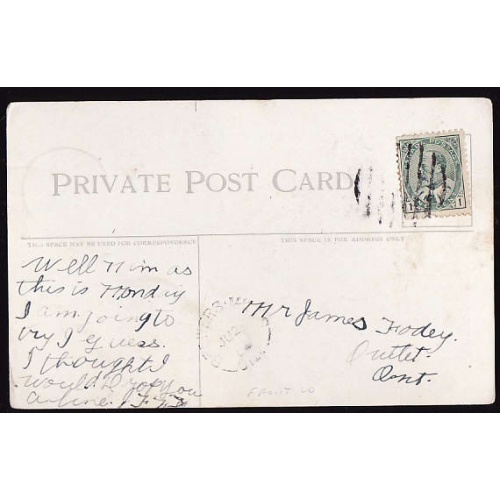 PRIVATE POST CARD
THIS SPACE MAY BE USED FOR CORRESPONDENCE
THIS SPACE IS FOR ADDRESS ONLY
Well Him as
this is Monday
I am going to
try I guess.
I thought I
would drop you
a line. F.F.
Mr James Fodey.
Outlet.
Ont.
1